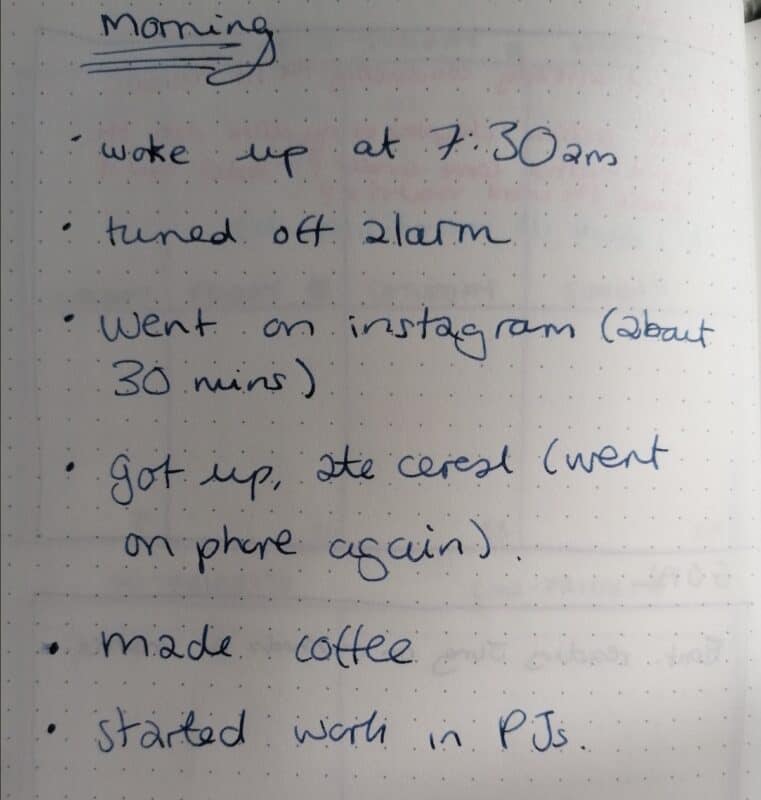 Morning
· woke up at 7:30am
· tuned off alarm
· went on instagram (about
30 mins)
· got up, ate cereal (went
on phone again).
· made coffee
· started work in PJs.